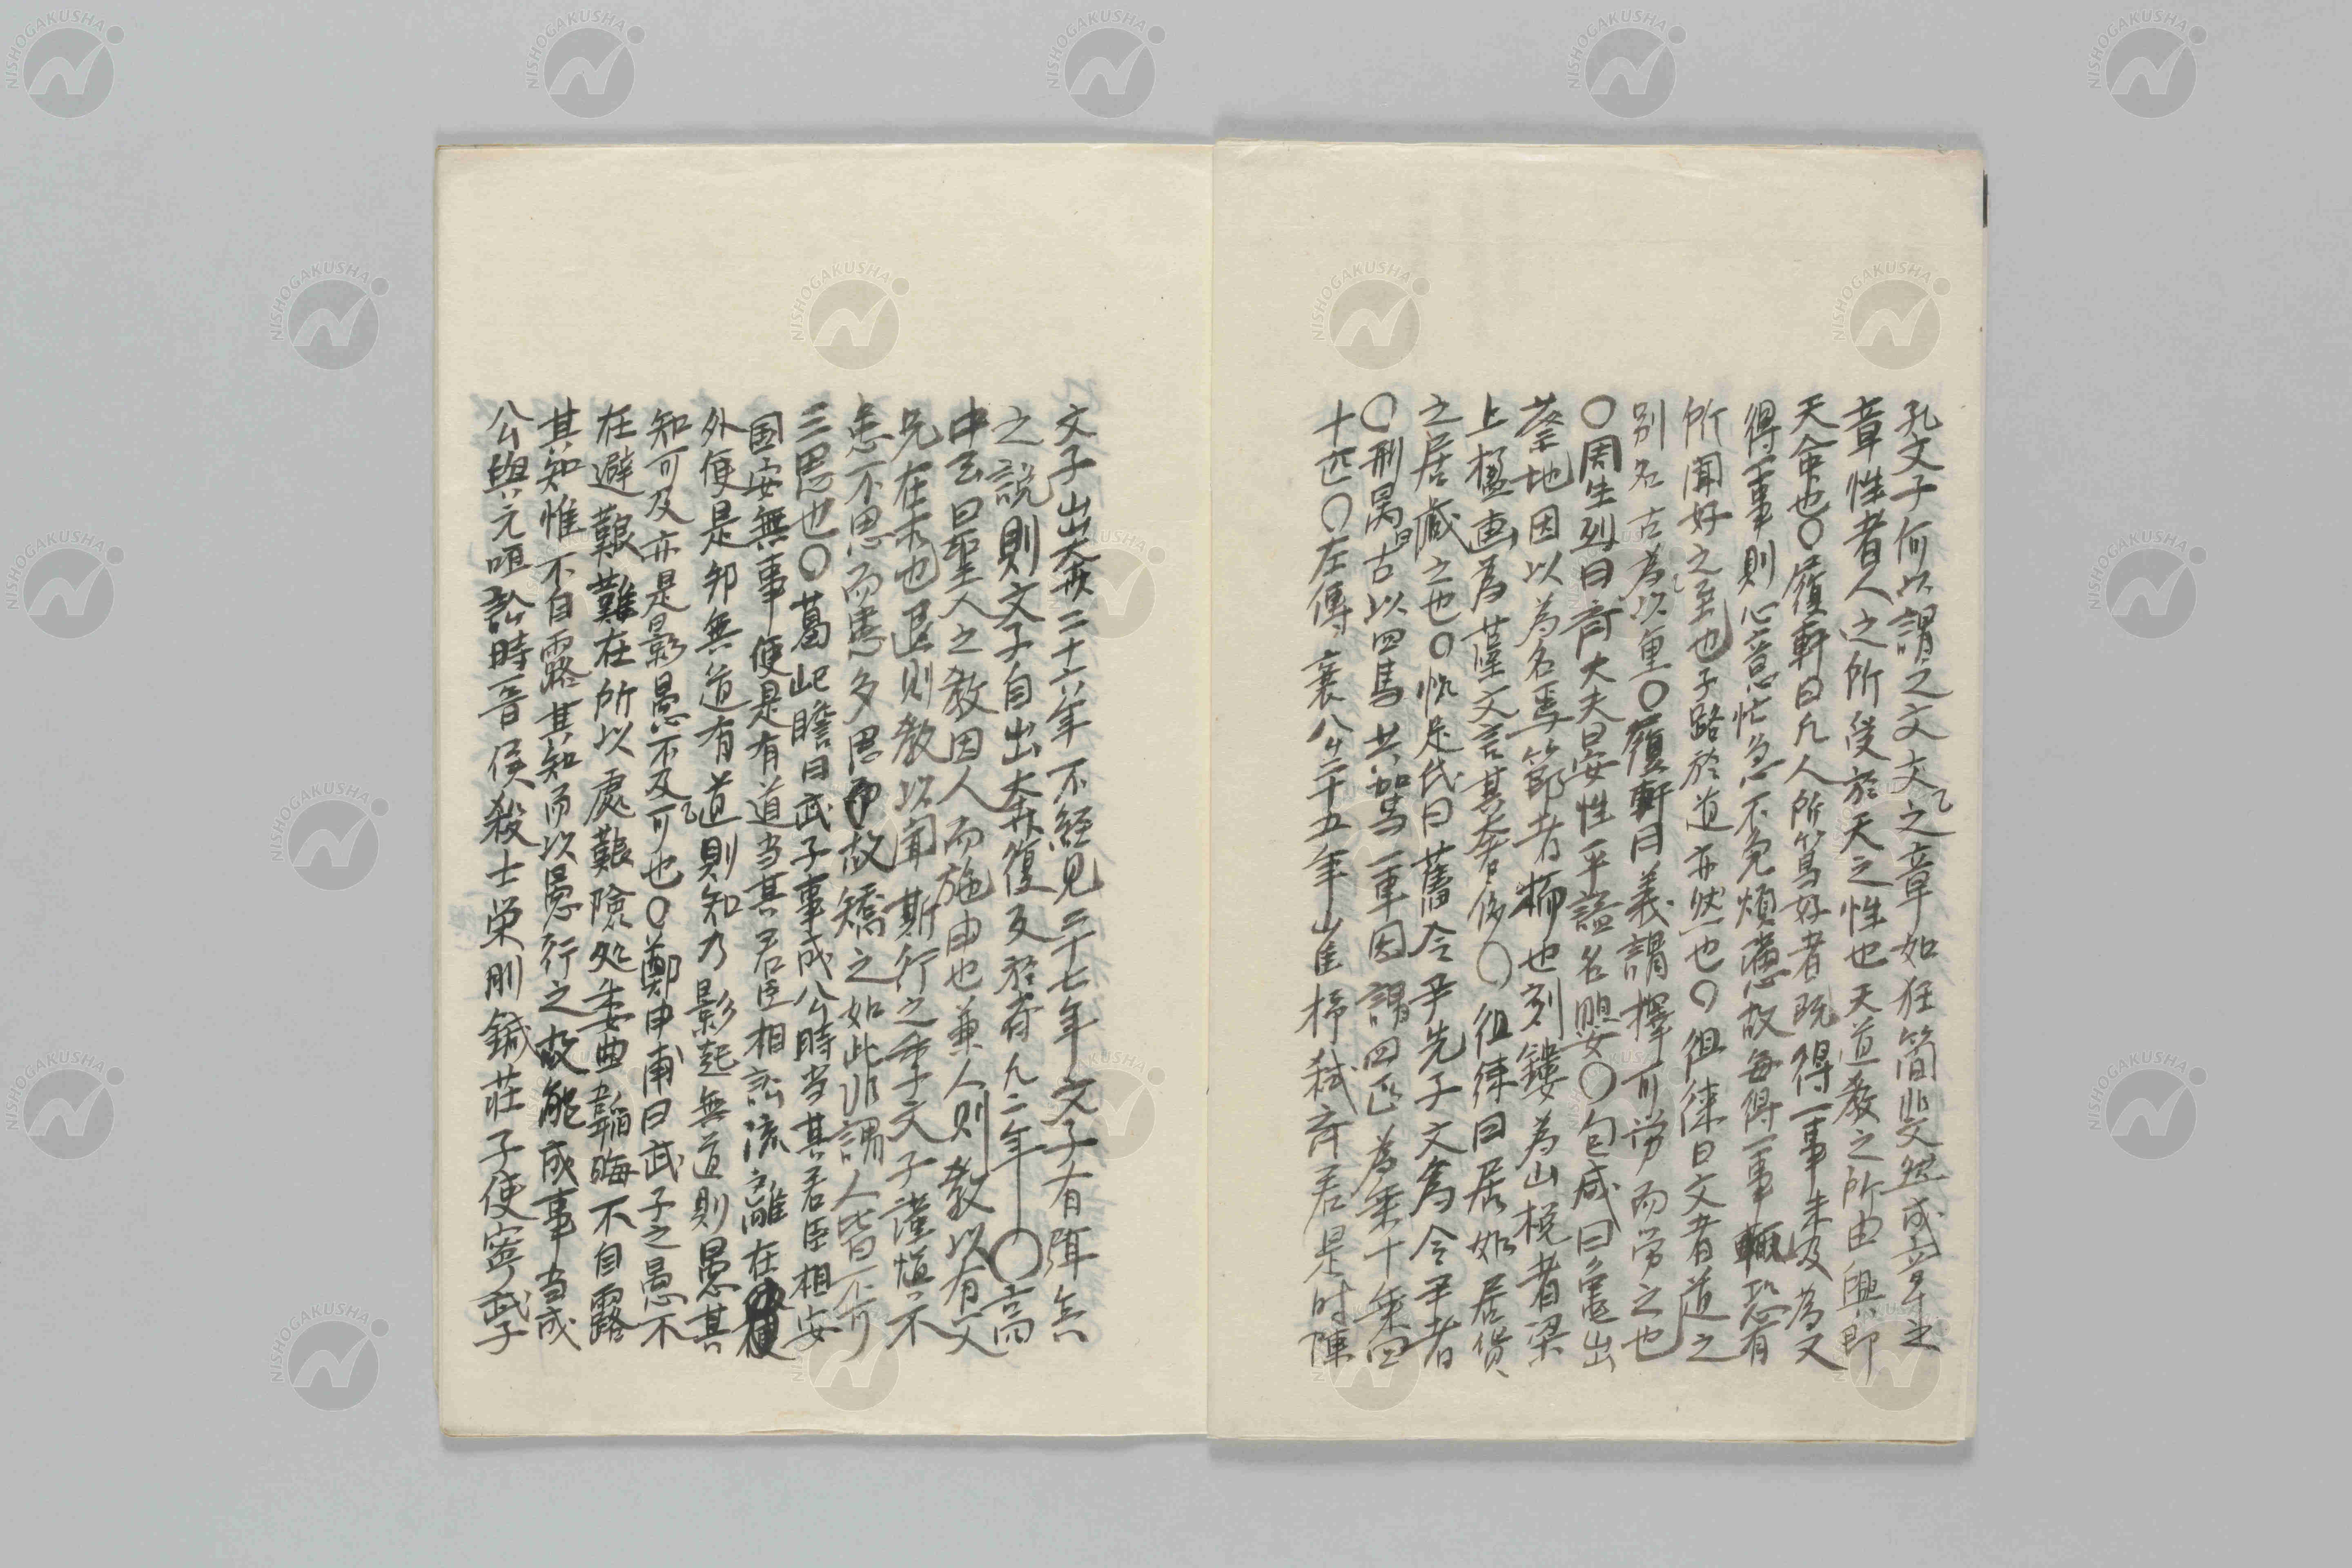 孔文子何以謂之文文之章如狂簡斐然成章之
章性者人之所受於天之性也天道教之所由興即
天命也〇履軒曰凡人所篤好者既得一事未及為又
得一事則心意忙急不免煩懣故每得一事輒恐有
所聞好之至也子路於道亦然也〇徂徠曰文者道之
別名古為以重〇履軒曰義謂擇可労而労之也
〇周生列曰斉大夫晏姓平諡名嬰〇包咸曰亀出
蔡地因以為名焉節者栭也刻鏤為山梲者梁
上楹画為藻文言其奢侈〇徂徠曰居如居貨
之居蔵之也〇 曰舊令尹先子文為令尹者
〇刑昺曰古以四馬共駕一車因謂四匹為乗十乗四
十匹〇左傳襄公二十五年崔杼弑斉君是時陳
文子出奔二十六年不経見二十七年文子有弭兵
之説則文子自出奔復反於斉凡二年〇高
中玄曰聖人之教因人而施由也兼人則教以有父
兄在求也退則教以聞斯行之季文子謹慎不
患不思而患多思故矯之如此非謂人皆不可
三思也〇葛屺瞻曰武子事成公時当其君臣相安
国安無事便是有道当其君臣相訟流離在
外便是邦無道有道則知乃影起無道則愚其
知可及亦是影愚不及可也〇鄭申甫曰武子之愚不
在避艱難在所以處艱險処委曲韜晦不自露
其知惟不自露其知而以愚行之故能成事当成
公與元咺訟時晋侯殺士栄刖鍼荘子使寗武子